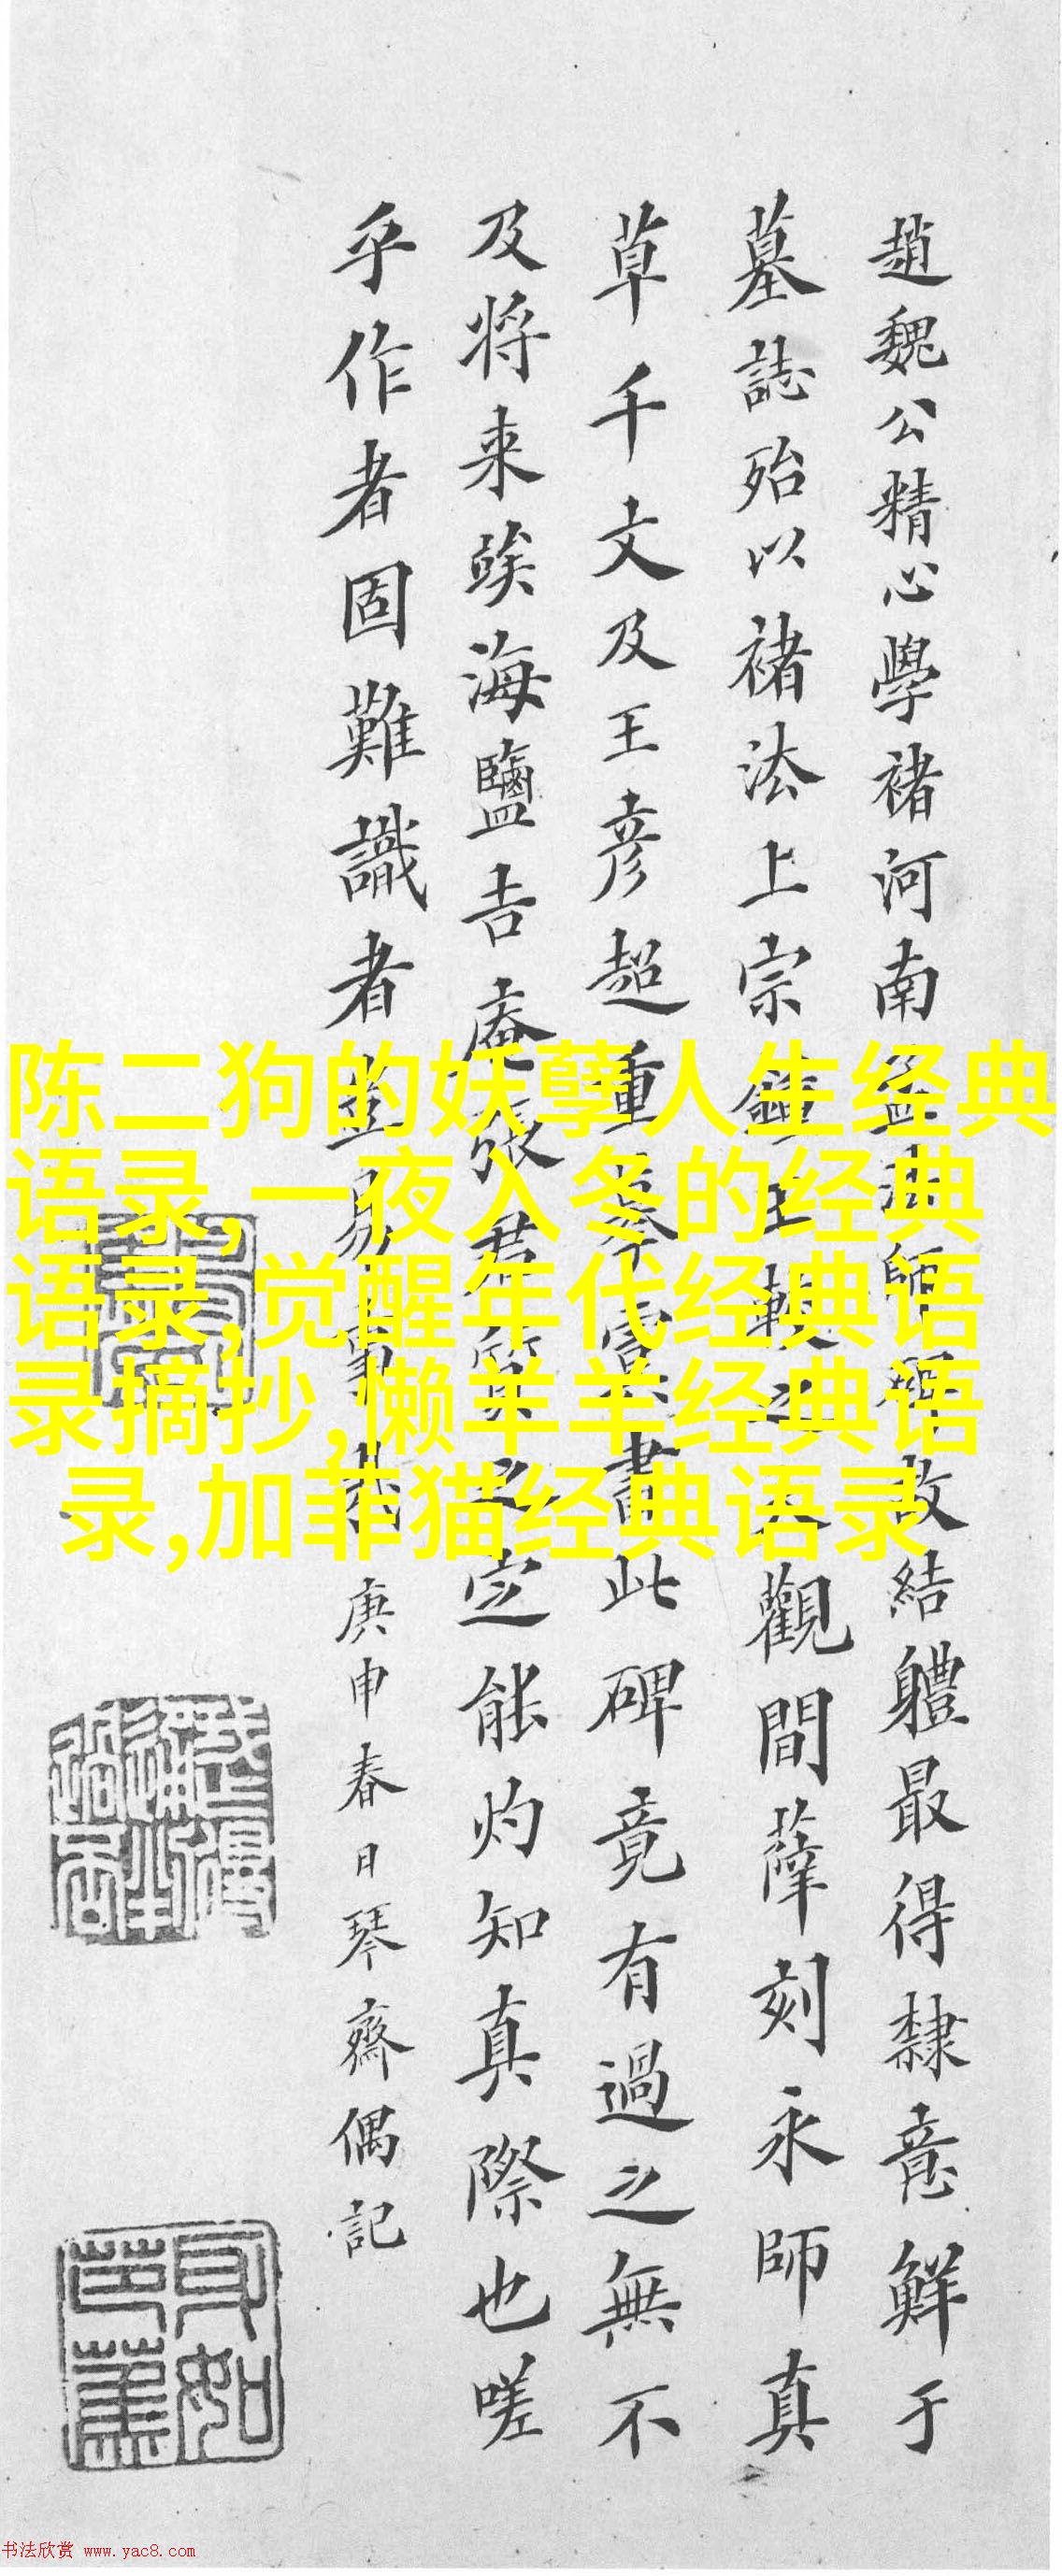 趙魏公精心學褚河南孟法師碑故結軆最得隸意鮮于
墓誌殆以褚法上宗鍾王較之大觀間薛刻永師真
草千文及王彦超重摹虞書此碑竟有過之無不
及将来竢海鹽吉庵張君質之定能灼知真際也嗟
乎作者固難識者豈易事哉 庚申春日琴齋偶記
陈二狗的妖孽人生经典
语录,一夜入冬的经典
语录,觉醒年代经典语
录摘抄,懒羊羊经典语
录,加菲猫经典语录
身如芭蕉
书法欣赏 www.yac8.com